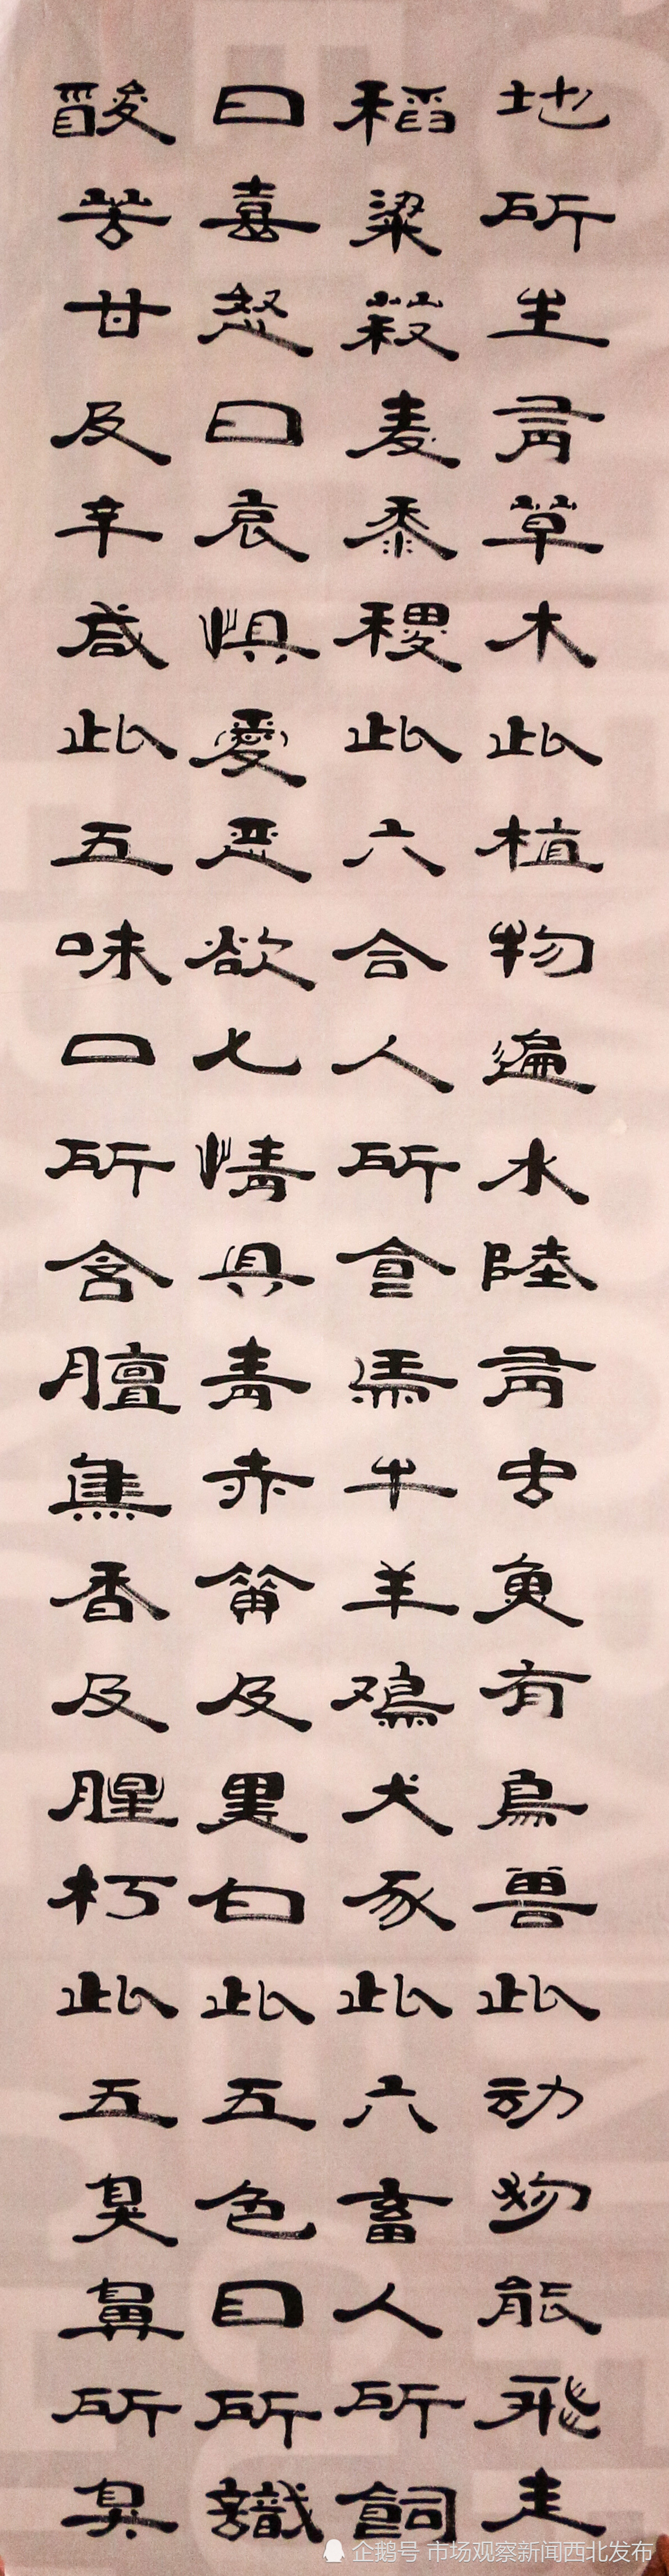 地所生有草木此植物遍水陸有虫魚有鳥兽此动物能飛走
稻粱菽麦黍稷此六合人所食馬牛羊鸡犬豕此六畜人所飼
曰喜怒曰哀惧愛恶欲七情具青赤黄及黑白此五色目所識
酸苦甘及辛咸此五味口所含膻焦香及腥朽此五臭鼻所臭
企鹅号 市场观察新闻西北发布